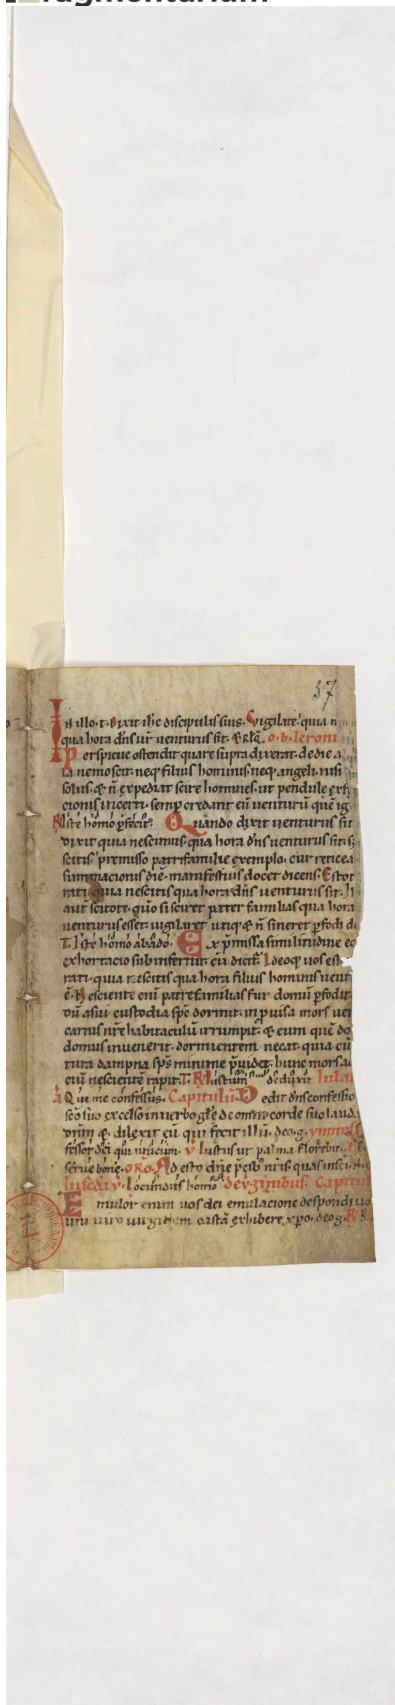 37
In illo. t. dixit ihc discipulis suis. Vigilate. quia n
qua hora dñs ur uenturus sit. & rlq̃. o. b. Ieroni
Perspicue ostendit quare supra dixerat. de die a
la nemo scit. neq; filius hominis. neq; angeli. nisi
solus. & ñ expediat scire homines. ut pendule exp
cionis incerti. semp credant eũ uenturũ quẽ ig
R Iste homo pfecit. Quando dixit uenturus sit
dixit qua nescimus. qua hora dñs uenturus sit. s;
scitis. premisso patrisfamilie exemplo. cur reticea
summacionis diẽ. manifestius docet dicens. Estot
rati quia nescitis qua hora dñs uenturus sit. Il
aut scitote. quo si sciret pater familias qua hora
uenturus esset. uigilaret utiq; & ñ sineret pfodi d
Iste homo ab ado. Ex pmissa similitudine eo
exhortacio subinfertur. cũ dicit. Ideoq; uos est
rati. quia nescitis qua hora filius hominis uent
ẽ. Nesciente eni patrefamilias fur domũ pfodit
dũ a sui custodia spc dormit. inpuisa mors uei
carnis nrẽ habitaculũ irrumpit. & eum quẽ do
domus inuenerit. dormientem necat. quia cũ
tura dampna sps minime puidet. hunc mors a
ciũ nescientẽ rapit. R Iustum deduxit In la
a Qui me confessus. Capitulũ Dedit dns confessio
sco suo excelso in uerbo glẽ de omni corde suo laud
dnm & dilexit eũ qui fecit illũ. deo. g. ymnus
fessor dei qui unicum. v Iustus ut palma florebit. a
serue bone. oro Adesto dñe pcib; nris. quas in sci
v. Iocundus homo de virginibus. Capitul
Emulor enim uos dei emulacione. despondi uo
uni uiro uirginem castã exhibere xpo. deo g. R